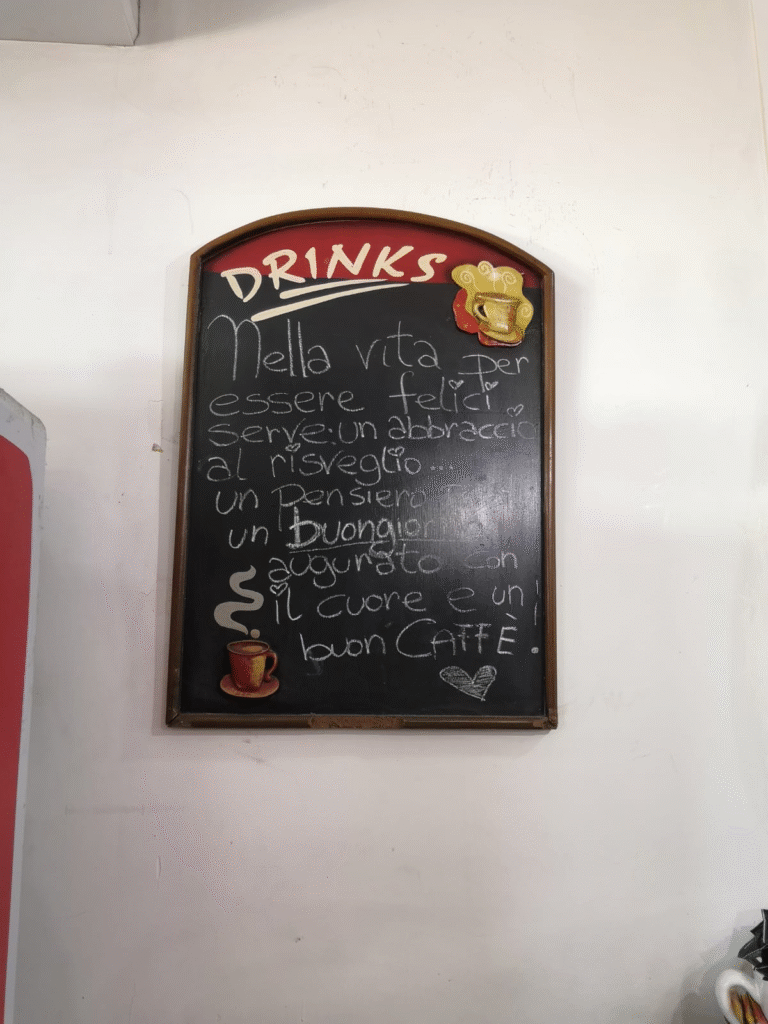 DRINKS
Nella vita per
essere felici
serve: un abbraccio
al risveglio...
un pensiero
un buongiorno
augurato con
il cuore e un
buon CAFFÈ!